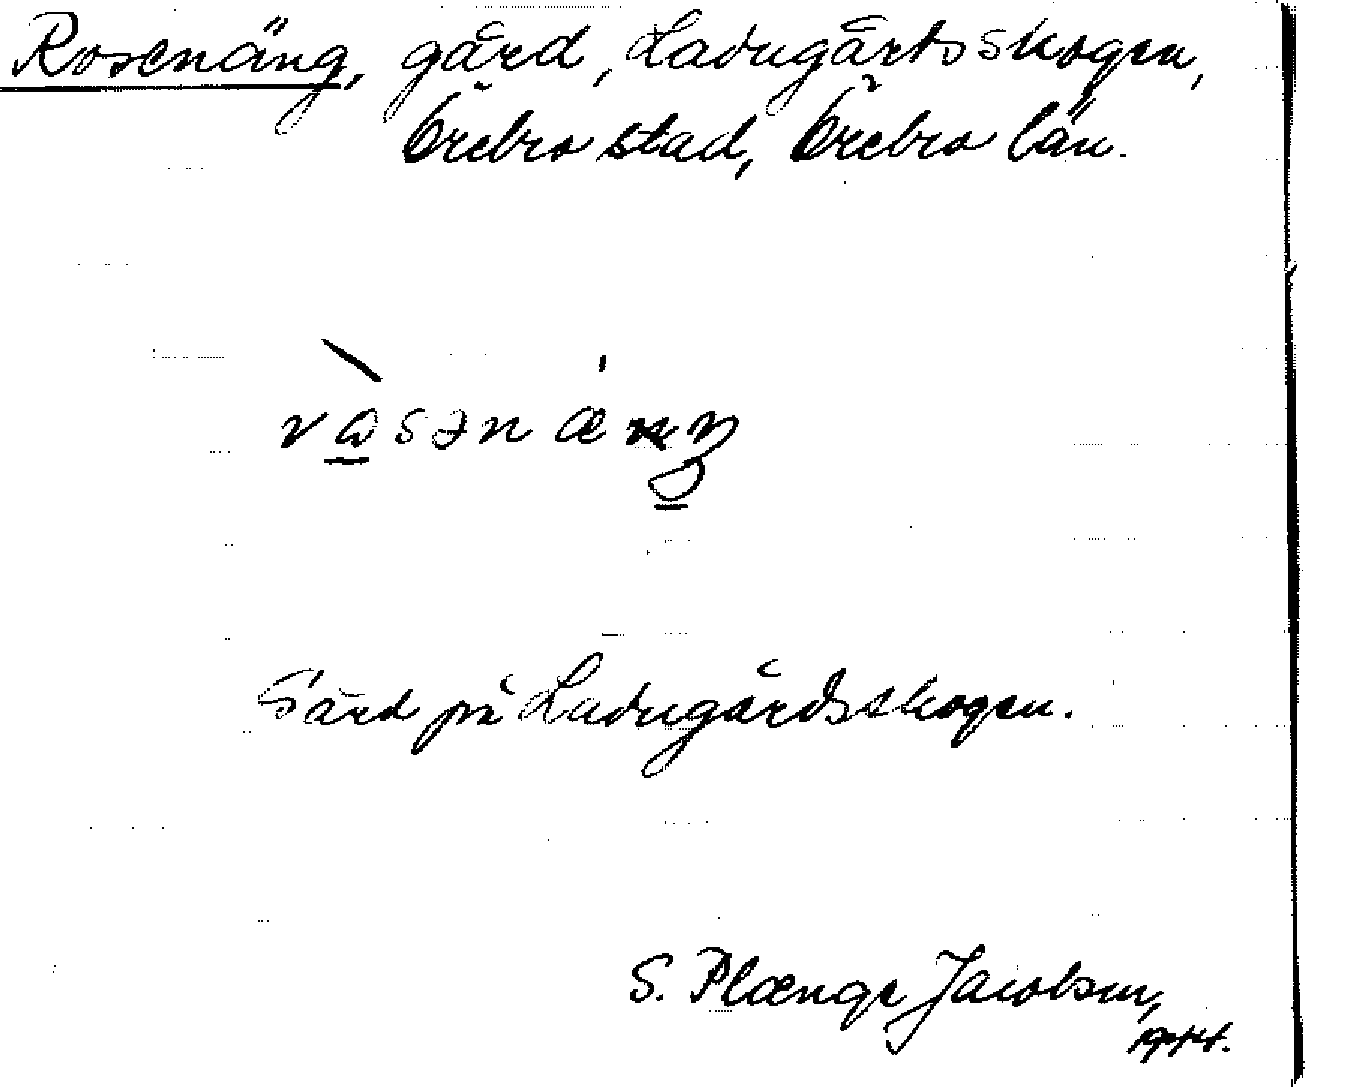 Rosenäng, gård, Ladugårdsskogen,
Örebro stad, Örebro län.
Gård på Ladugårdsskogen.
S. Plænge Jacobsen,